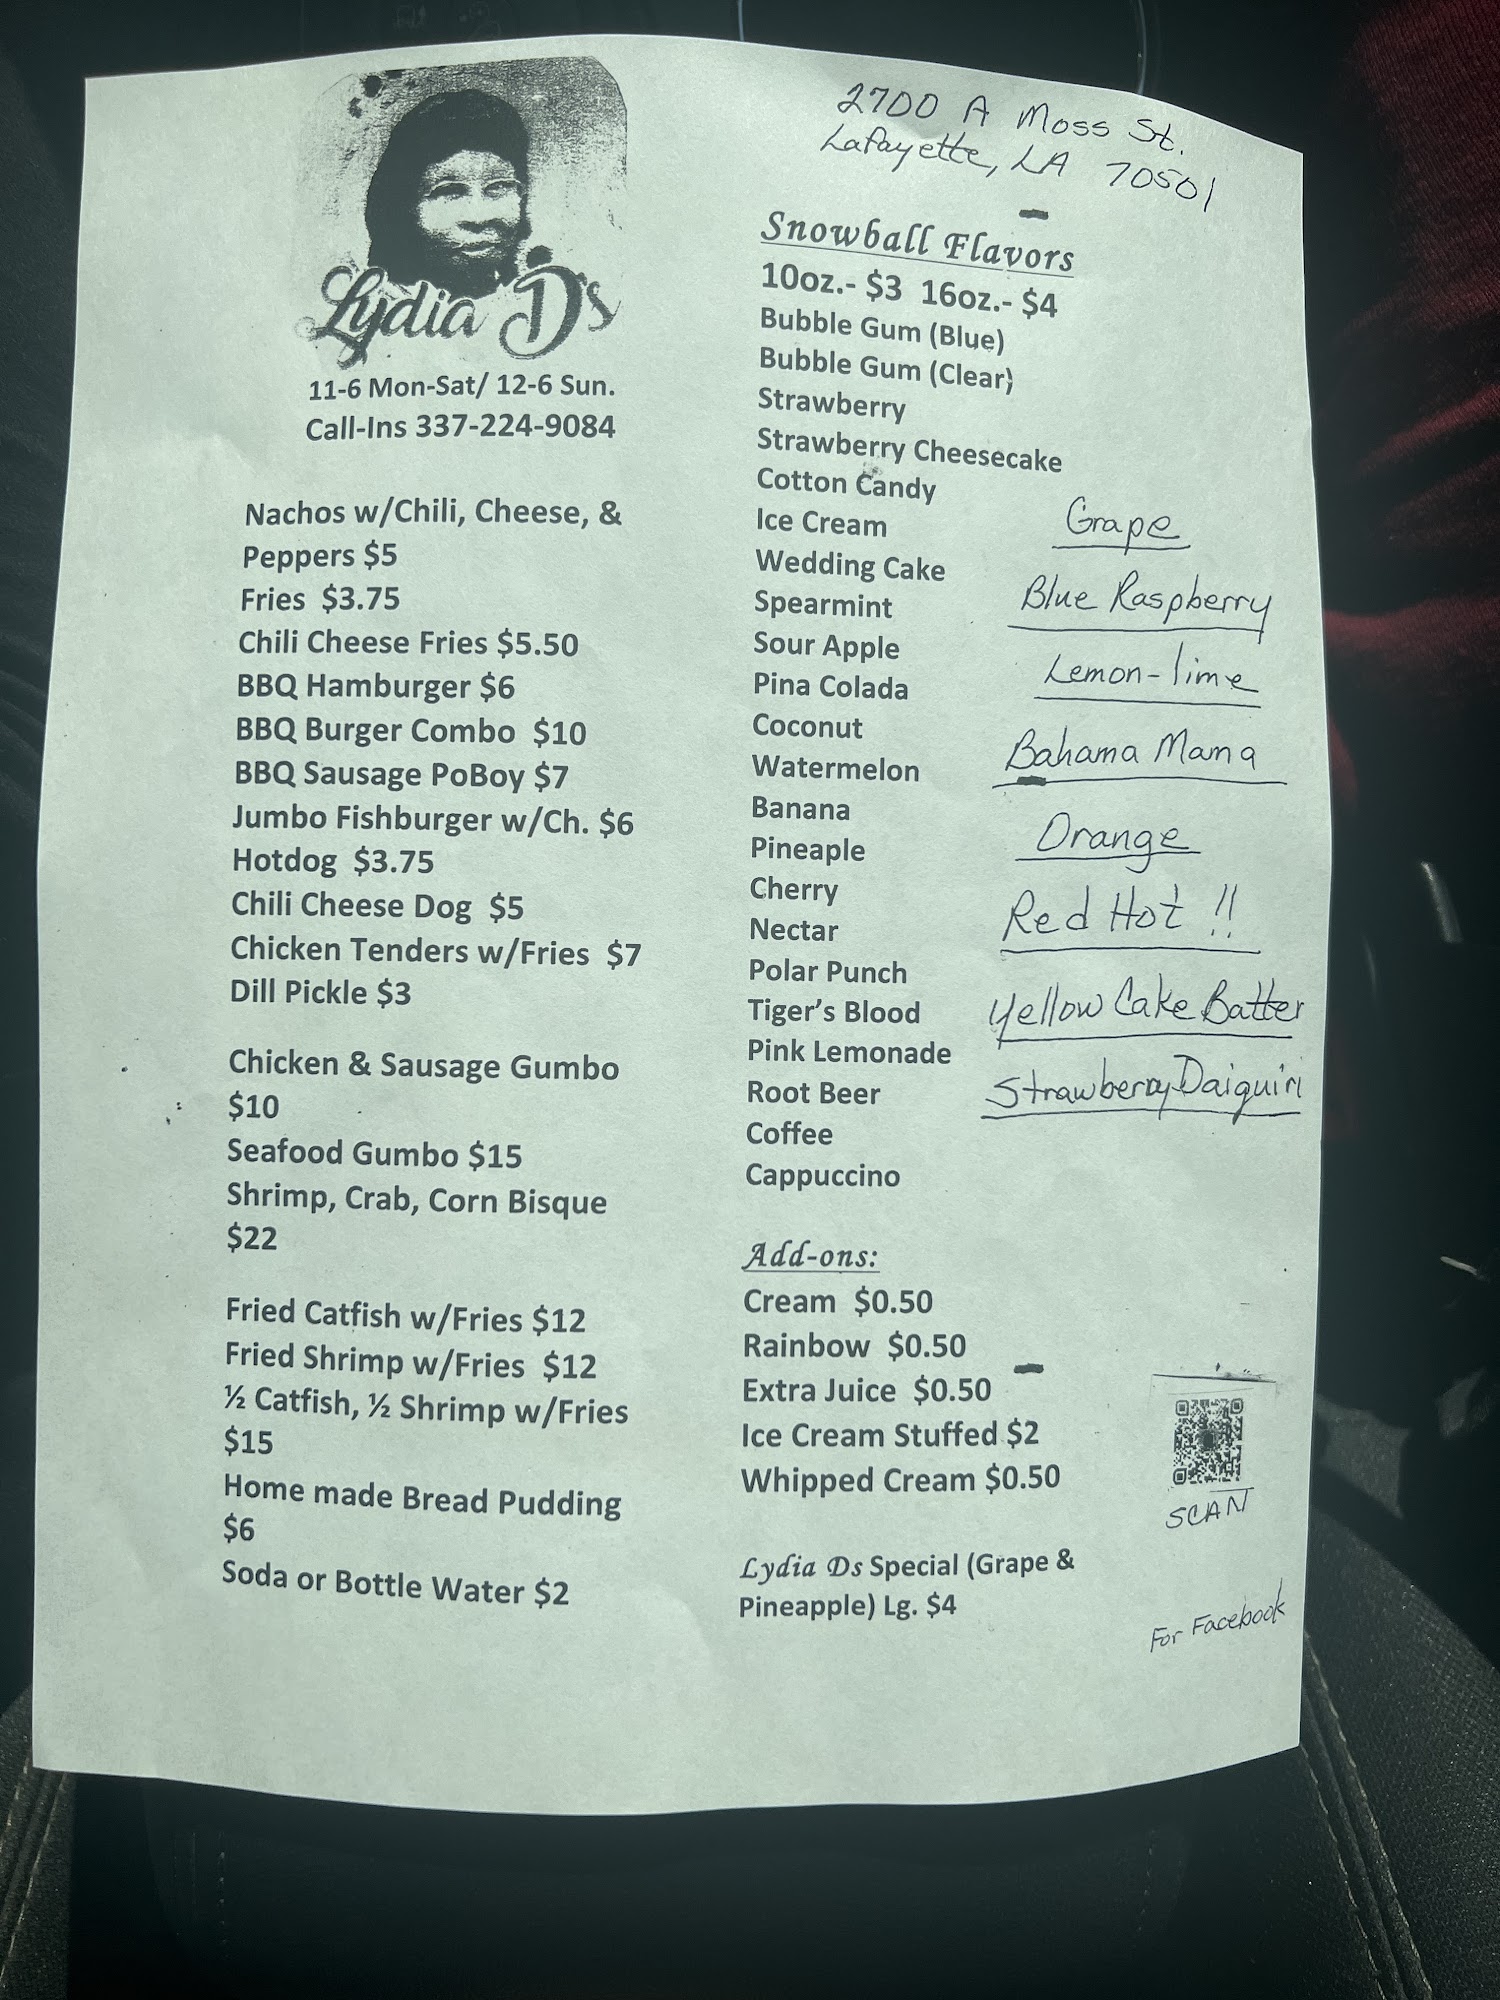 Lydia D's
11-6 Mon-Sat/ 12-6 Sun.
Call-Ins 337-224-9084
Nachos w/Chili, Cheese, &
Peppers $5
Fries $3.75
Chili Cheese Fries $5.50
BBQ Hamburger $6
BBQ Burger Combo $10
BBQ Sausage PoBoy $7
Jumbo Fishburger w/Ch. $6
Hotdog $3.75
Chili Cheese Dog $5
Chicken Tenders w/Fries $7
Dill Pickle $3
Chicken & Sausage Gumbo
$10
Seafood Gumbo $15
Shrimp, Crab, Corn Bisque
$22
Fried Catfish w/Fries $12
Fried Shrimp w/Fries $12
½ Catfish, ½ Shrimp w/Fries
$15
Home made Bread Pudding
$6
Soda or Bottle Water $2
2700 A Moss St.
Lafayette, LA 70501
Snowball Flavors
10oz.- $3 16oz.- $4
Bubble Gum (Blue)
Bubble Gum (Clear)
Strawberry
Strawberry Cheesecake
Cotton Candy
Ice Cream
Wedding Cake
Spearmint
Sour Apple
Pina Colada
Coconut
Watermelon
Banana
Pineaple
Cherry
Nectar
Polar Punch
Tiger's Blood
Pink Lemonade
Root Beer
Coffee
Cappuccino
Grape
Blue Raspberry
Lemon-lime
Bahama Mama
Orange
Red Hot !!
Yellow Cake Batter
Strawberry Daiquiri
Add-ons:
Cream $0.50
Rainbow $0.50
Extra Juice $0.50
Ice Cream Stuffed $2
Whipped Cream $0.50
Lydia Ds Special (Grape &
Pineapple) Lg. $4
SCAN
For Facebook